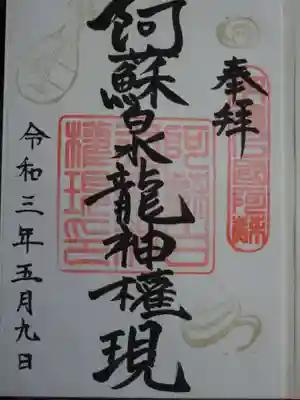 奉拝
阿蘇白水龍神權現
令和三年五月九日